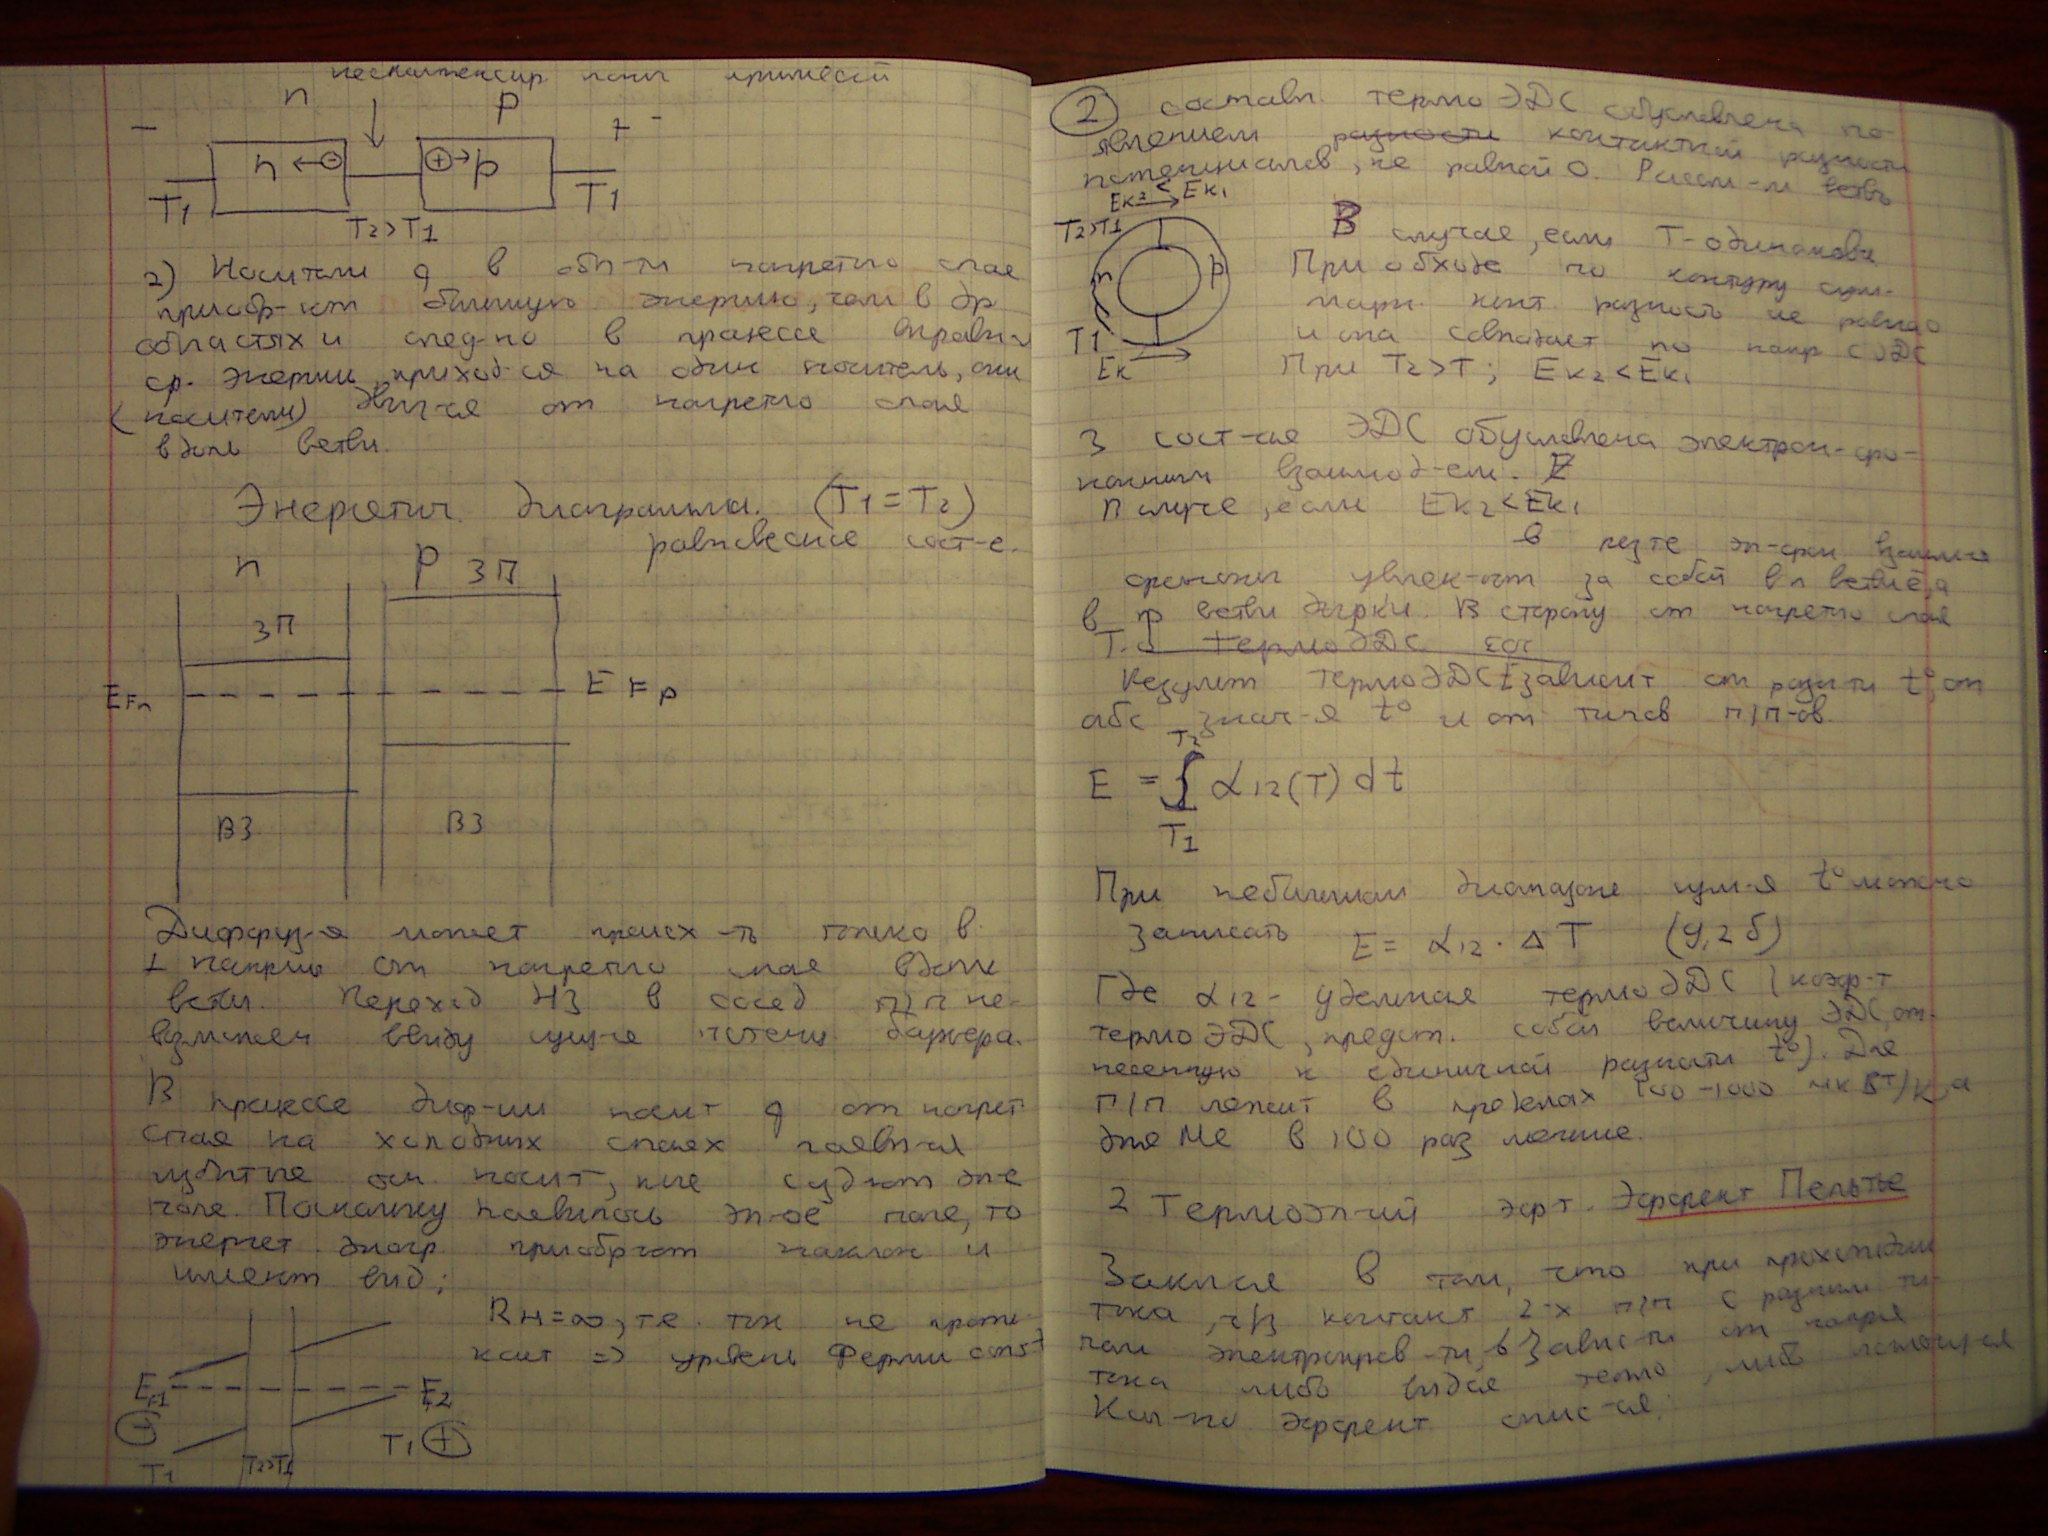 нескомпенсир ионы примесей
n p
− + -
n ←⊖ ⊕→ p
T1 T2>T1 T1
2) Носители q в обл-ти нагретого спая
приобр-ют большую энергию, чем в др
областях и след-но в процессе выравн-я
ср. энергии, приход-ся на один носитель, они
(носители) движ-ся от нагретого спая
вдоль ветви.
Энергетич. диаграмма. (T1=T2)
равновесное сост-е.
n P ЗП
ЗП
EFn EFp
ВЗ ВЗ
Диффуз-я может происх-ть только в
1 направ от нагретого спая вдоль
ветви. Переход НЗ в сосед п/п не-
возможен ввиду сущ-я потенц барьера.
В процессе диф-ии носит q от нагрет
спая на холодных спаях появл-ся
избытые осн носит, кие создают эл-е
поле. Поскольку появилось эл-ое поле, то
энергет. диагр приобрают наклон и
имеют вид:
RH=∞, т.е. ток не проте-
кает => уровень Ферми const
EF1 EF2
⊖ T1 ⊕
T1 T2>T1
② составл. термоЭДС обусловлена по-
явлением разности контактной разности
потенциалов, не равной 0. Рассм-м ветвь
Eк2 < Eк1
T2>T1 В случае, если T-одинаковы
n p При обходе по контуру сум-
марн. конт разность не равна 0
T1 и она совпадает по напр с ЭДС
Eк При T2>T; Eк2<Eк1
3 сост-ая ЭДС обусловлена электрон-фо-
нонным взаимод-ем. E
В случе, если Eк2<Eк1
в рез-те эл-фон взаим-я
фононы увлек-ают за собой в n ветви ē, а
в p ветви дырки. В сторону от нагретого спая
Т.о термоЭДС сос
Результ термоЭДС E зависит от разн-ти t°, от
абс знач-я t° и от типов п/п-ов
T2
E = ∫ α12(T) dt
T1
При небольшом диапазоне изм-я t° можно
записать E = α12 · ΔT (9,2 б)
Где α12 - удельная термоЭДС (коэф-т
термоЭДС, предст. собой величину ЭДС, от-
несенную к единичной разности t°). Для
п/п лежит в пределах 100-1000 мк Вт/К, а
для Ме в 100 раз меньше.
2 Термоэл-ий эф-т. Эффект Пельтье
Закл-ся в том, что при прохождении
тока, ч/з контакт 2-х п/п с разным ти-
пом электропров-ти, в зависти от напр-я
тока либо выд-ся тепло, либо поглощ-ся
Кол-но эффект опис-ся: